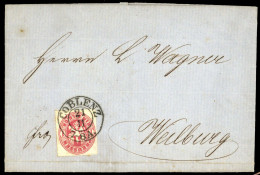 Herrn L. Wagner
COBLENZ
21
fro
Weilburg